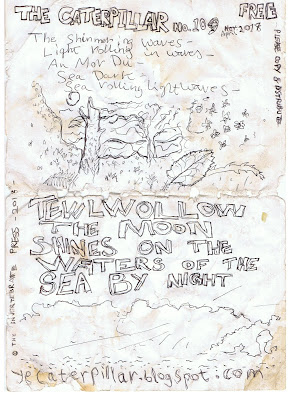 THE CATERPILLAR No. 18
FREE
2018
The Shimmering waves-
Light Rolling in waves-
An Mor Du-
Sea Dark-
Sea Rolling Lightwaves-
PLEASE COPY & DISTRIBUTE
TEWLWOLLOW
THE MOON
SHINES ON THE
WATERS OF THE
SEA BY NIGHT
PRESS 2018
yecaterpillar.blogspot.com